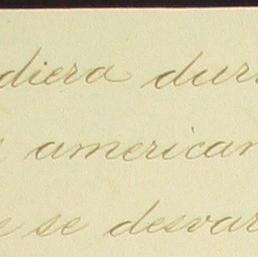 diera dur
american
e se desvar